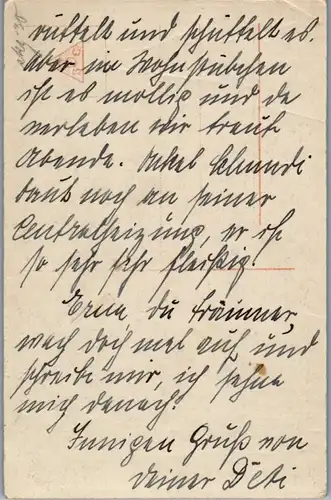 rüttelt und schüttelt es.
Aber im Wohnstübchen
ist es mollig und da
verleben wir traute
Abende. Onkel
baut noch an seiner
Centralheizung, er ist
so sehr sehr fleißig!
Erna du Träumer,
wach doch mal auf und
schreibe mir, ich sehne
mich danach!
Innigen Gruß von
deiner Deti